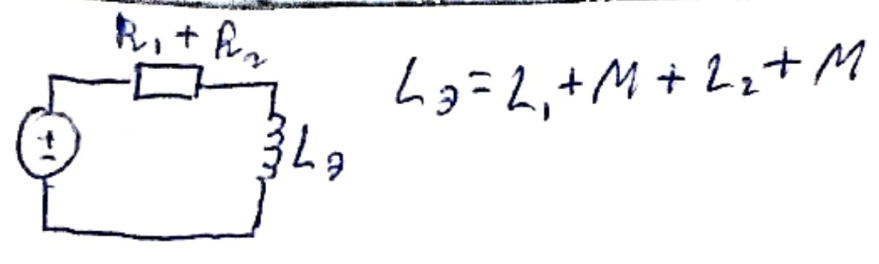 R₁ + R₂
Lэ = L₁ + M + L₂ + M
±
Lэ